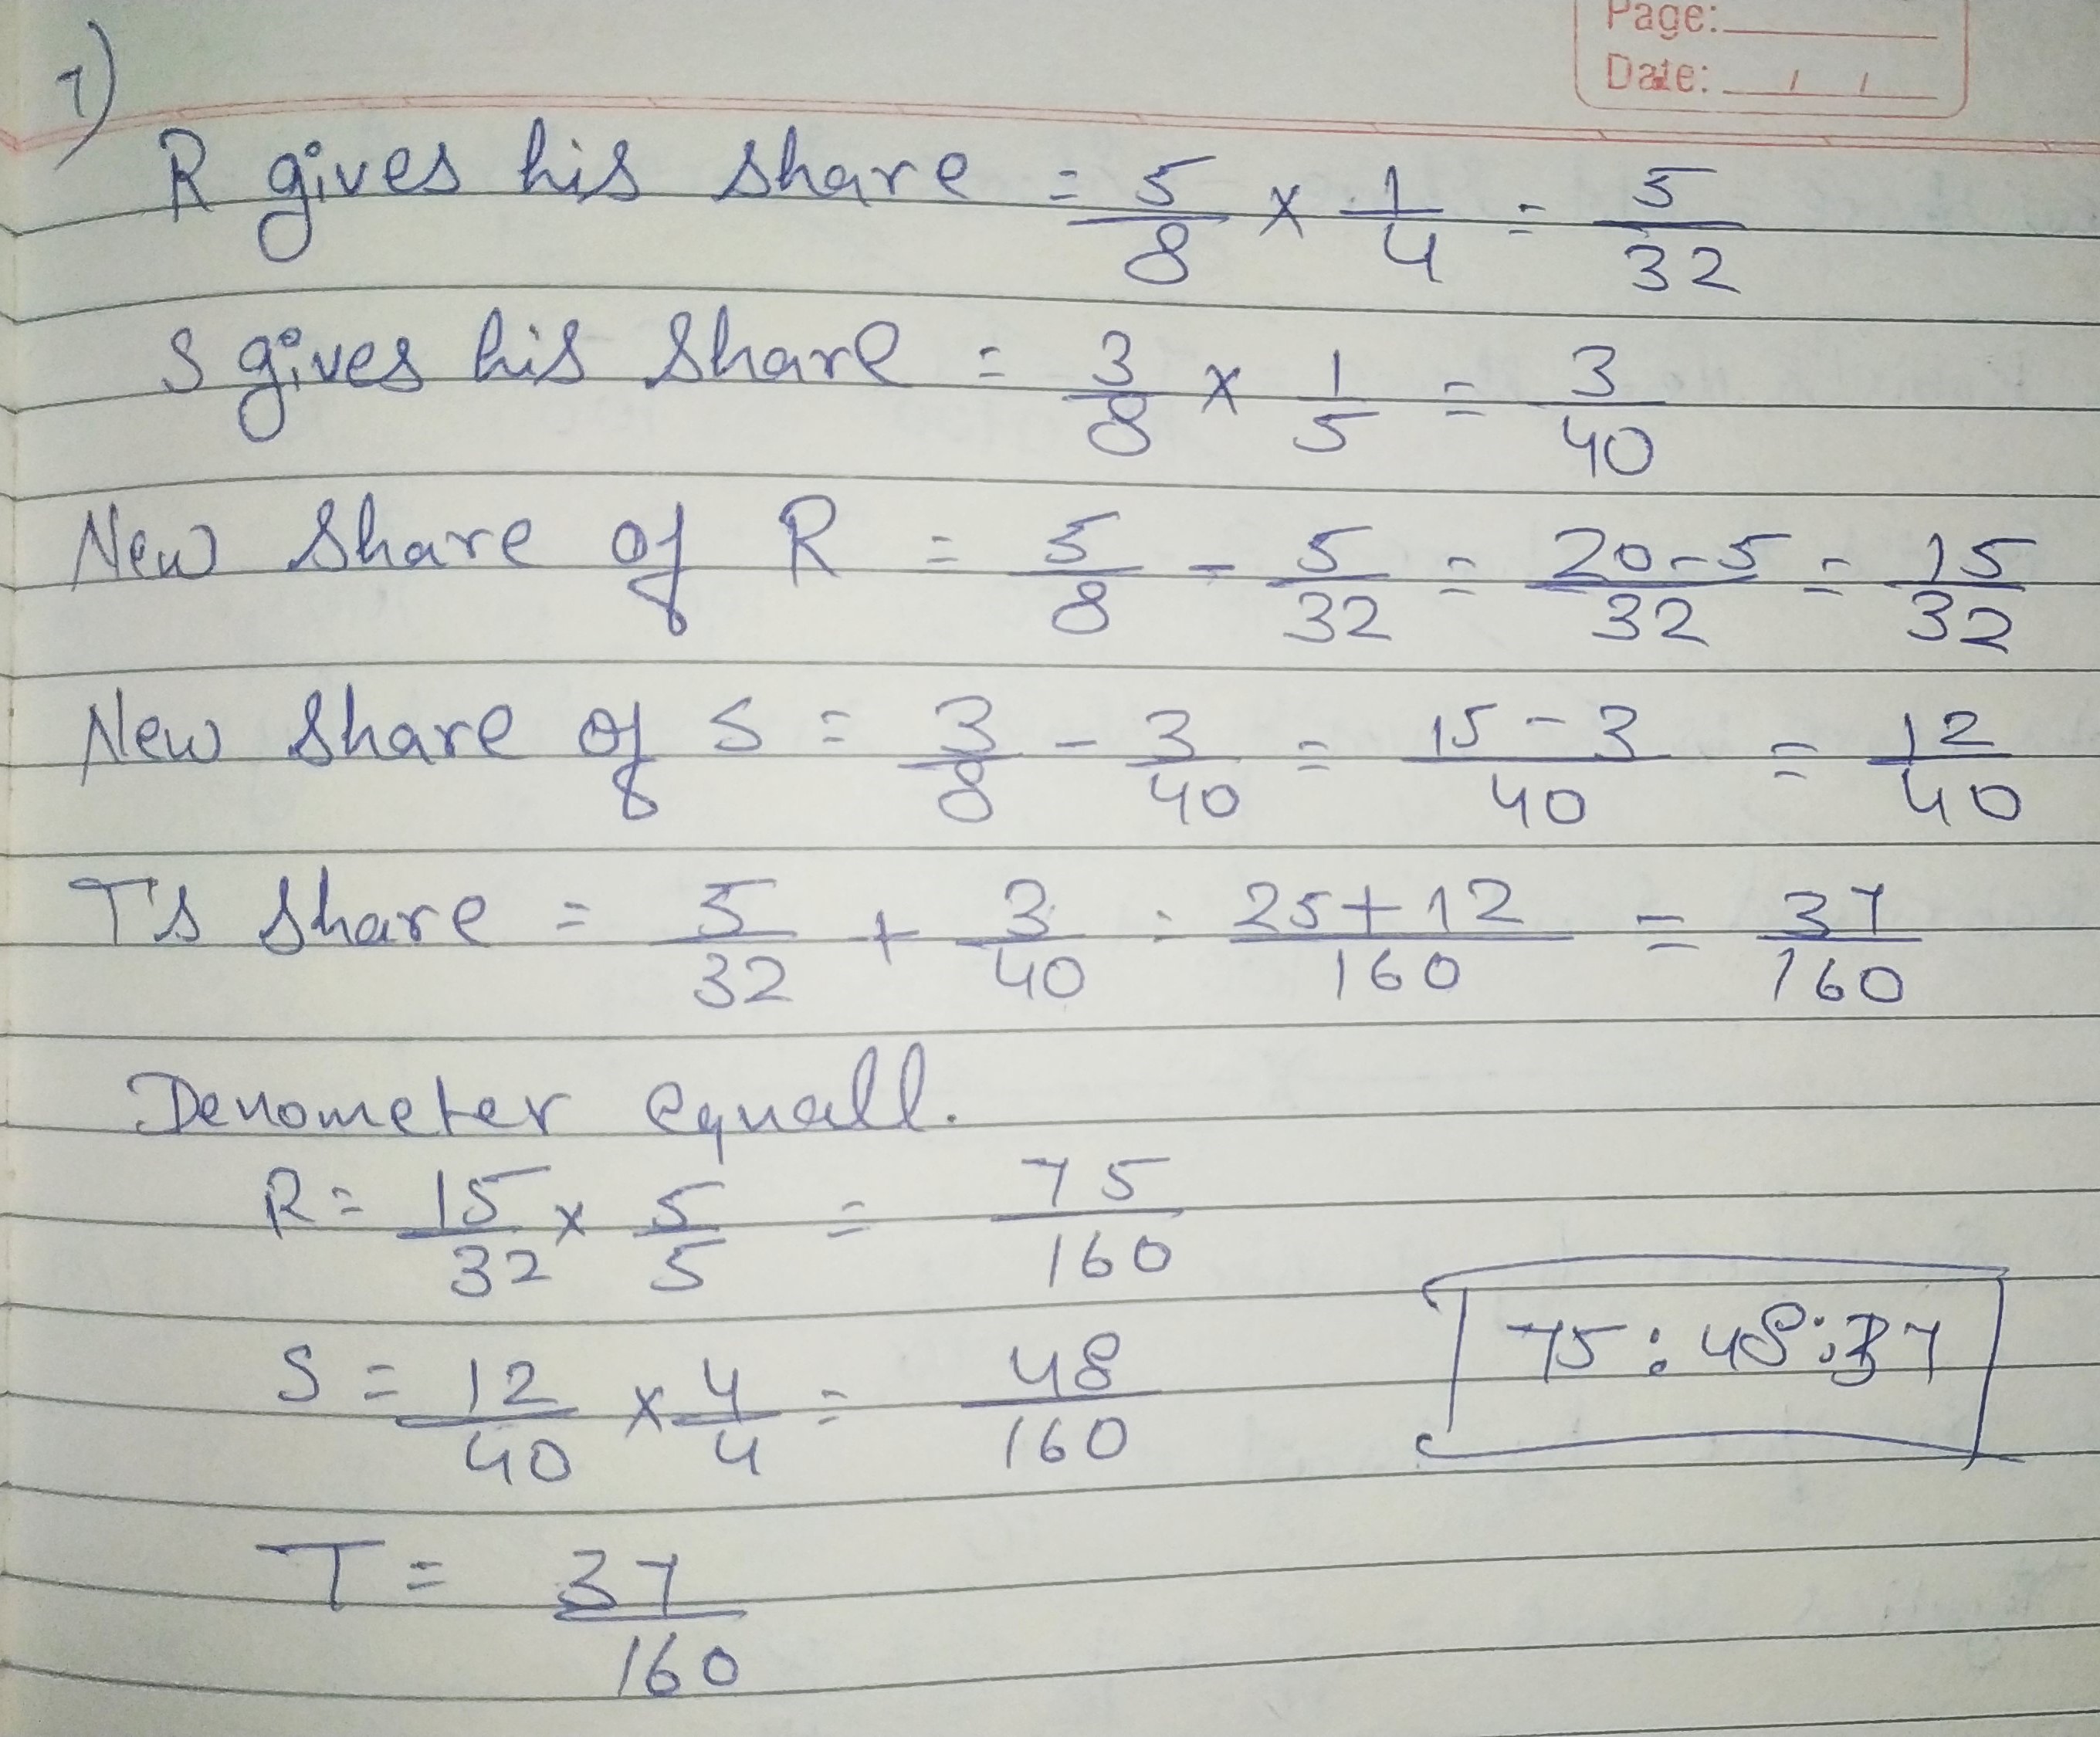 Page:
Date: / /
7)
R gives his share = 5/8 × 1/4 = 5/32
S gives his share = 3/8 × 1/5 = 3/40
New share of R = 5/8 - 5/32 = 20-5/32 = 15/32
New share of S = 3/8 - 3/40 = 15-3/40 = 12/40
T's share = 5/32 + 3/40 = 25+12/160 = 37/160
Denometer equall.
R = 15/32 × 5/5 = 75/160
75:48:37
S = 12/40 × 4/4 = 48/160
T = 37/160